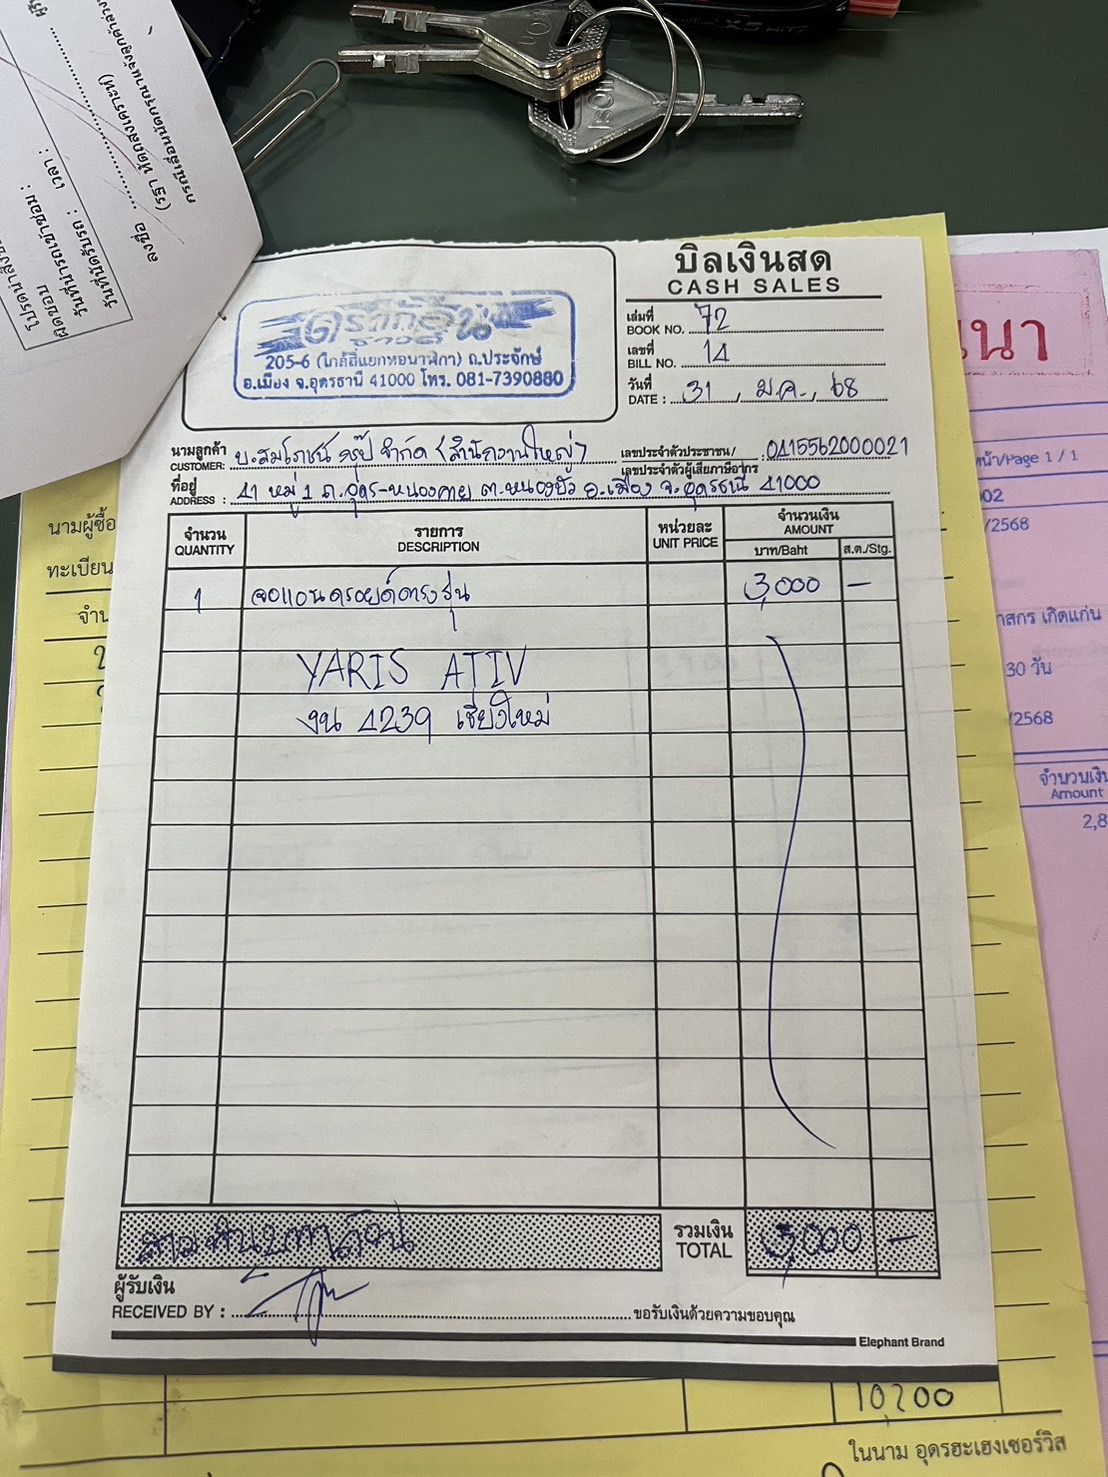 บิลเงินสด
CASH SALES
ดราก้อน
ซาวด์
205-6 (ใกล้สี่แยกหอนาฬิกา) ถ.ประจักษ์
อ.เมือง จ.อุดรธานี 41000 โทร. 081-7390880
เล่มที่
BOOK NO. 72
เลขที่
BILL NO. 14
วันที่
DATE : 31 ม.ค. 68
นามลูกค้า
CUSTOMER: บ.สมโภชน์ กรุ๊ป จำกัด (สำนักงานใหญ่)
เลขประจำตัวประชาชน/
เลขประจำตัวผู้เสียภาษีอากร : 0415562000021
ที่อยู่
ADDRESS : 41 หมู่ 1 ถ.อุดร-หนองคาย ต.หนองบัว อ.เมือง จ.อุดรธานี 41000
จำนวน รายการ หน่วยละ จำนวนเงิน
QUANTITY DESCRIPTION UNIT PRICE AMOUNT
บาท/Baht ส.ต./Stg.
1 จอแอนดรอยด์ตรงรุ่น 3,000 —
YARIS ATIV
งน 4239 เชียงใหม่
สามพันบาทถ้วน
รวมเงิน
TOTAL 3,000 —
ผู้รับเงิน
RECEIVED BY :
ขอรับเงินด้วยความขอบคุณ
Elephant Brand
นามผู้ซื้อ
ทะเบียน
จำน
10,200
ในนาม อุดรฮะเฮงเซอร์วิส
หน้า/Page 1 / 1
02
/2568
าสกร เกิดแก่น
30 วัน
/2568
จำนวนเงิน
Amount
2,8
วันที่นัดรับรถ : เวลา :
วันที่นำรถเข้าซ่อม :
ลงชื่อ